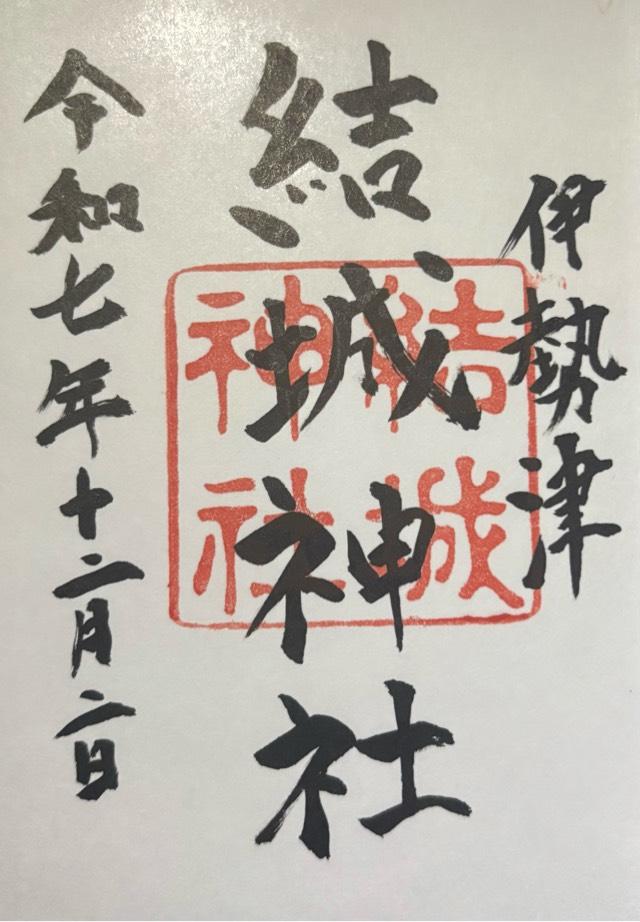 伊勢津
結城神社
結城
神社
令和七年十二月二日